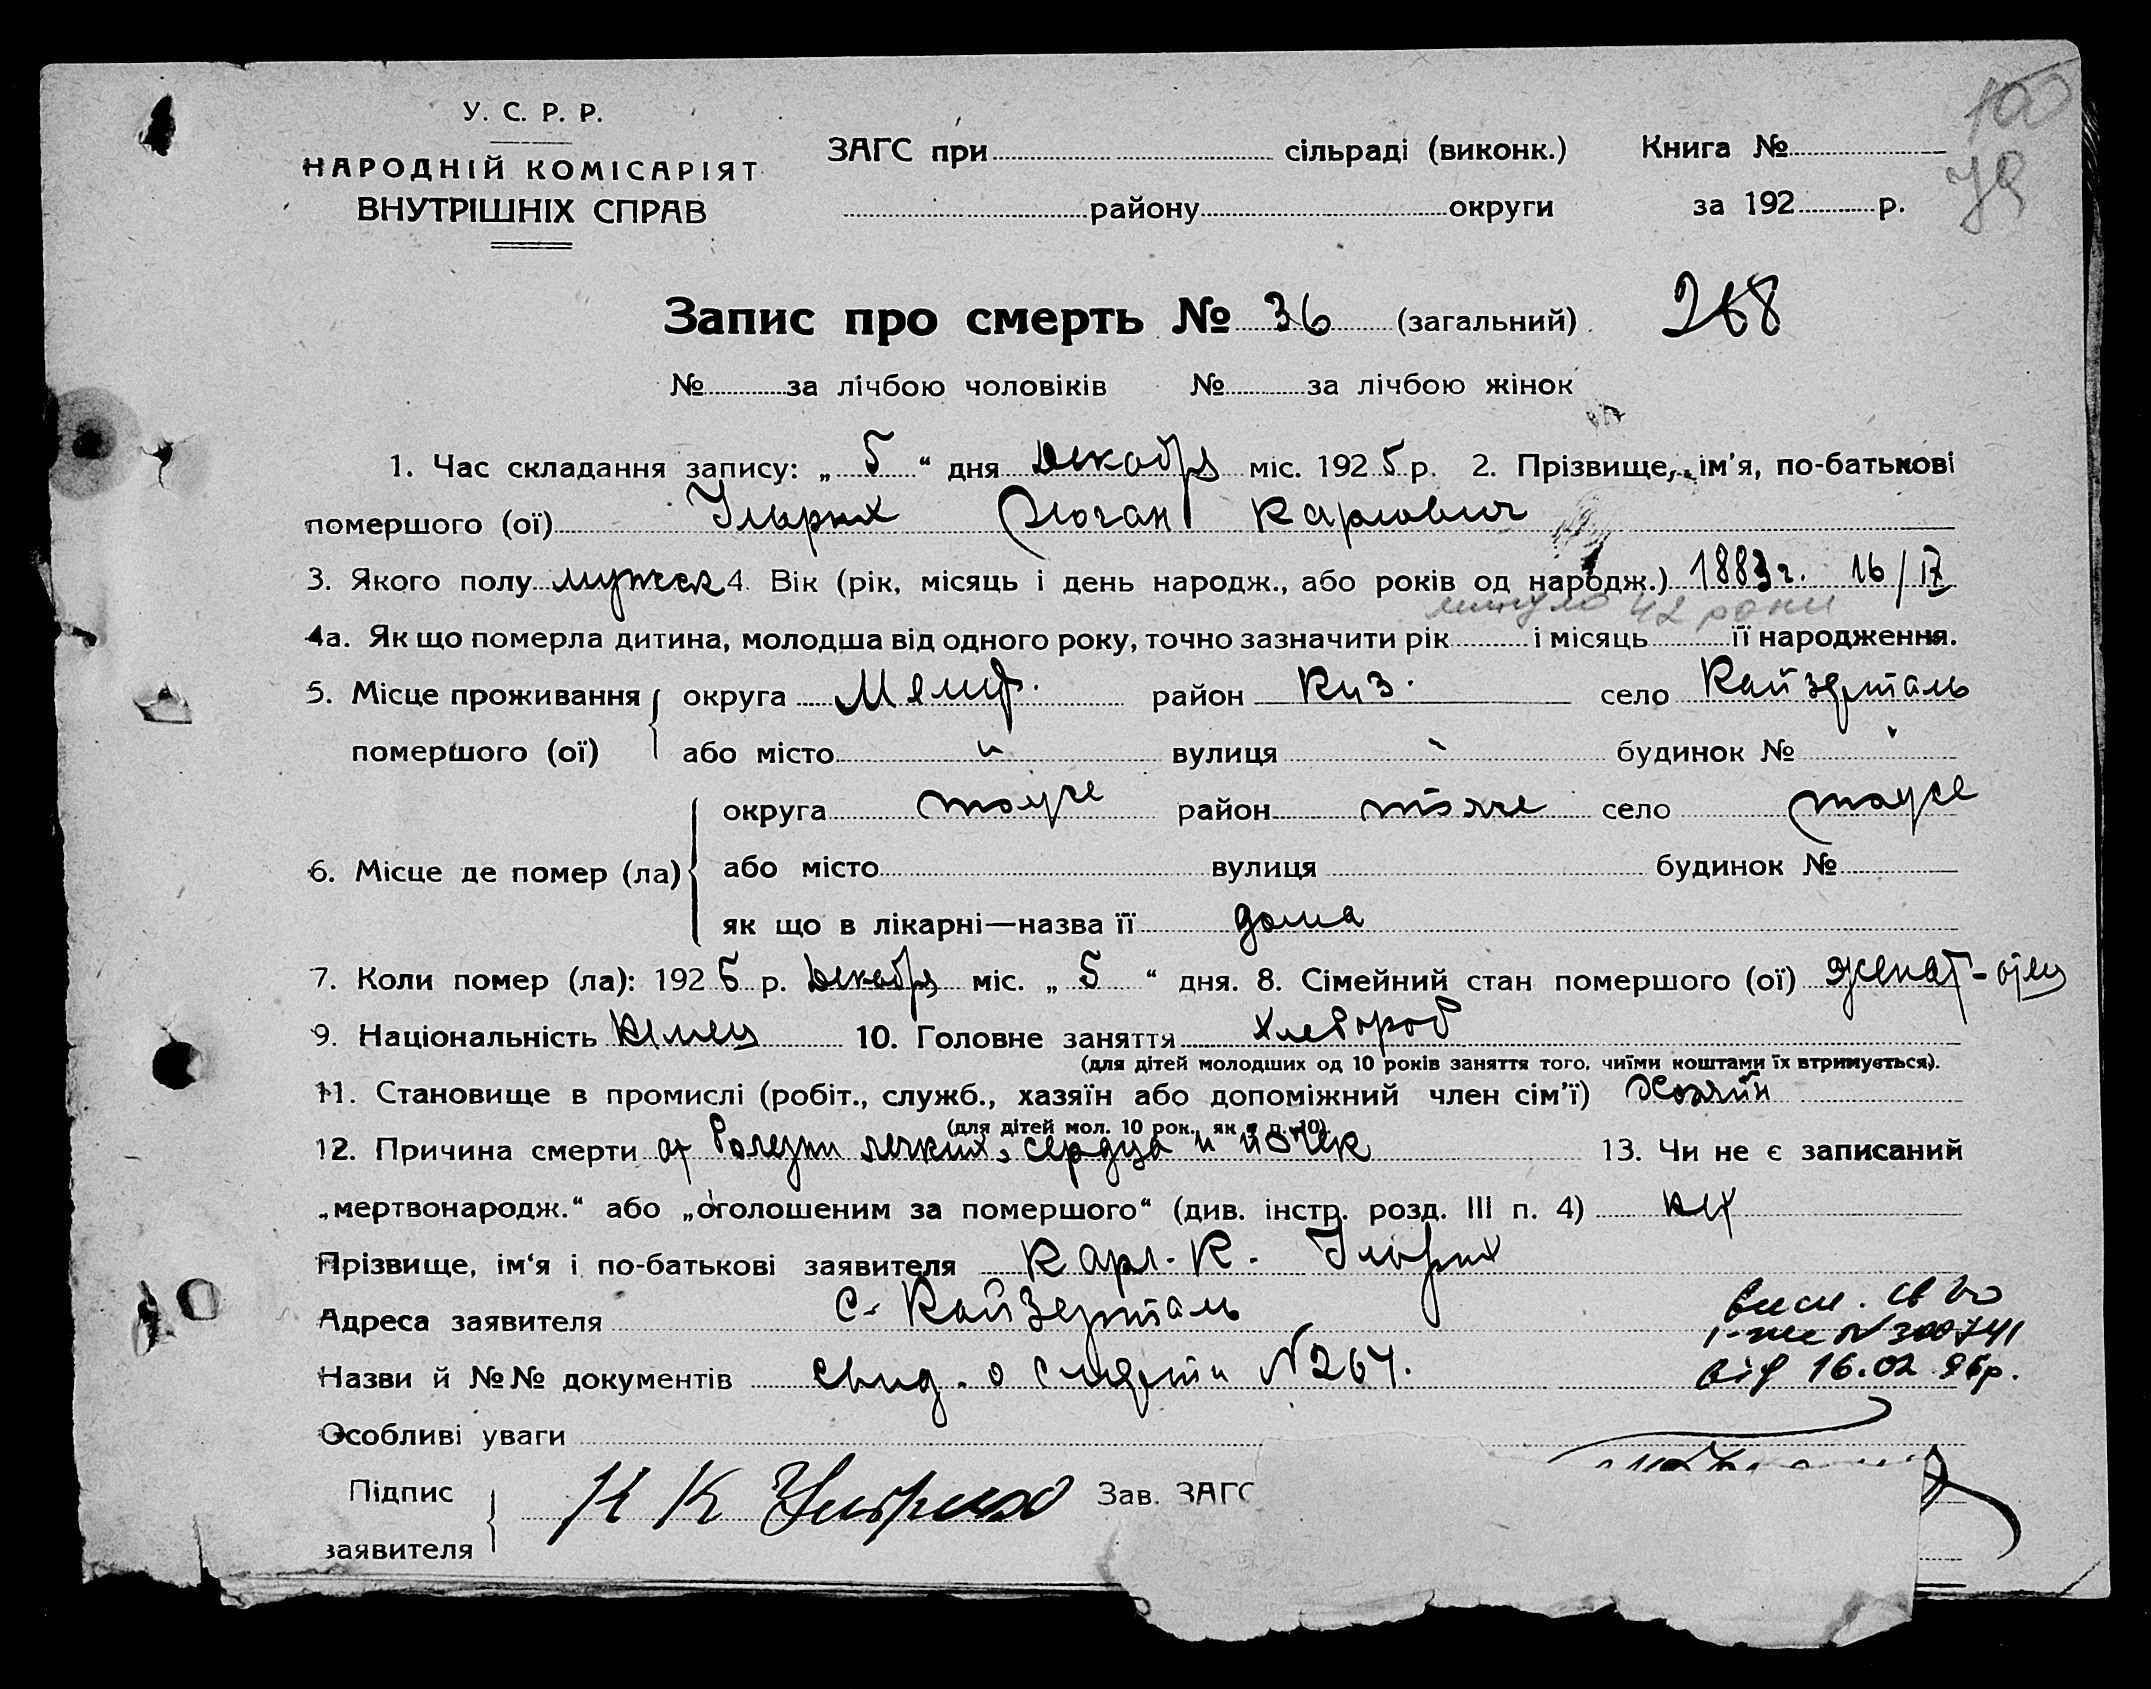 100
79
У. С. Р. Р.
НАРОДНІЙ КОМІСАРІЯТ
ВНУТРІШНІХ СПРАВ
ЗАГС при сільраді (виконк.) Книга №
району округи за 192 р.
Запис про смерть № 36 (загальний) 268
№ за лічбою чоловіків № за лічбою жінок
1. Час складання запису: „ 5 “ дня Декабря міс. 192 5 р. 2. Прізвище, ім'я, по-батькові
помершого (ої) Ульрих Иоган Карлович
3. Якого полу мужск 4. Вік (рік, місяць і день народж., або років од народж.) 1883 г. 16/IX
минуло 42 роки
4а. Як що померла дитина, молодша від одного року, точно зазначити рік і місяць її народження.
5. Місце проживання округа район село Кайзерталь
помершого (ої) або місто вулиця будинок №
округа тоже район тоже село тоже
6. Місце де помер (ла) або місто вулиця будинок №
як що в лікарні—назва її дома
7. Коли помер (ла): 192 5 р. Декабря міс. „ 5 “ дня. 8. Сімейний стан помершого (ої) женат-
9. Національність немец 10. Головне заняття хлебороб
(для дітей молодших од 10 років заняття того, чиїми коштами їх втримується).
11. Становище в промислі (робіт., служб., хазяїн або допоміжний член сім'ї) Хозяин
(для дітей мол. 10 рок., як в п. 10).
12. Причина смерти от болезни легких, сердца и почек 13. Чи не є записаний
„мертвонародж.“ або „оголошеним за помершого“ (див. інстр. розд. III п. 4) нет
Прізвище, ім'я і по-батькові заявителя Карл. К. Ульрих
Адреса заявителя с. Кайзерталь
Назви й №№ документів свид. о смерти № 264.
№ 300741
від 16.02 96р.
Особливі уваги
Підпис
заявителя К К Ульрих Зав. ЗАГС